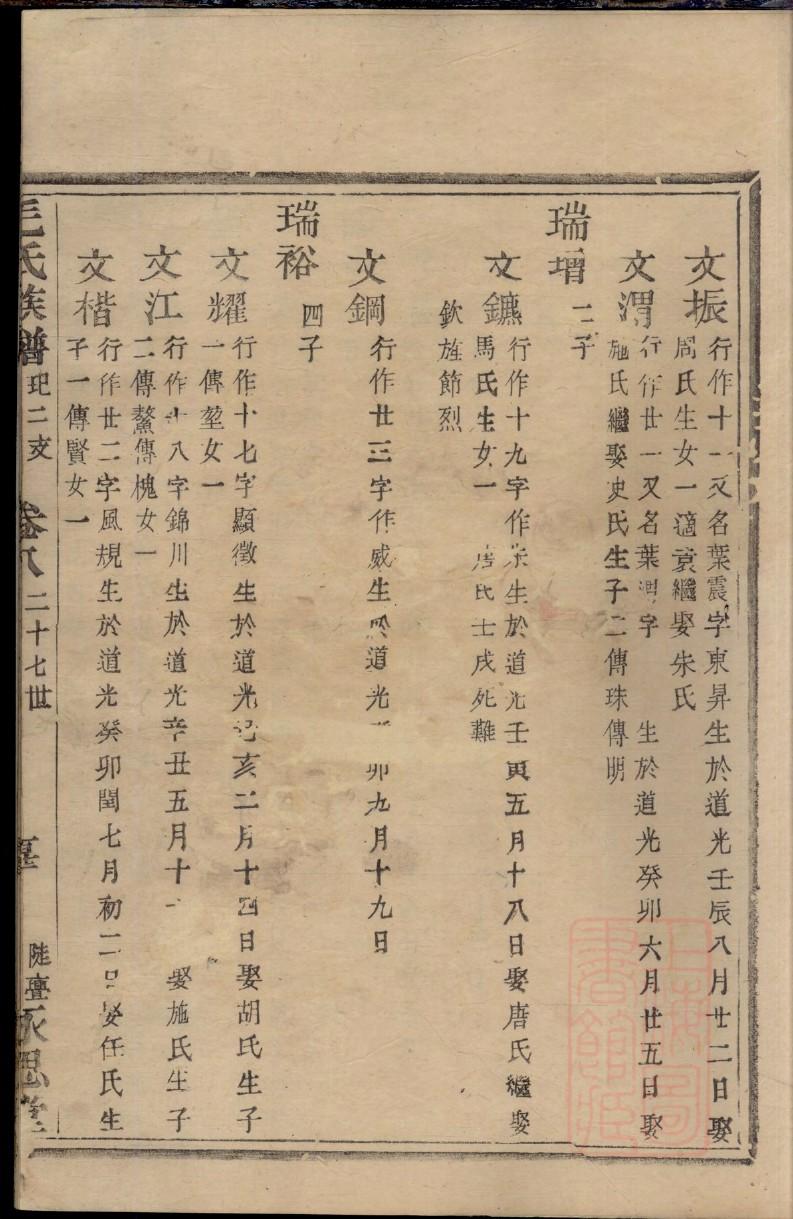 文振
行作十一又名葉震字東昇生於道光壬辰八月廿二日娶
周氏生女一適袁繼娶朱氏
文渭
行作廿一又名葉 字 生於道光癸卯六月廿五日娶
施氏繼娶史氏生子二傳珠傳明
瑞增
二子
文鑣
行作十九字作 生於道光壬寅五月十八日娶唐氏繼娶
馬氏生女一 唐氏壬戌死難
欽旌節烈
文鋼
行作廿三字作威生於道光 卯九月十九日
瑞裕
四子
文耀
行作十七字顯徵生於道光 亥二月十四日娶胡氏生子
一傳堃女一
文江
行作十八字錦川生於道光辛丑五月十 娶施氏生子
二傳鰲傳槐女一
文楷
行作廿二字風規生於道光癸卯閏七月初二日娶任氏生
子一傳賢女一
毛氏族譜
二支
卷八
二十七世
永思堂